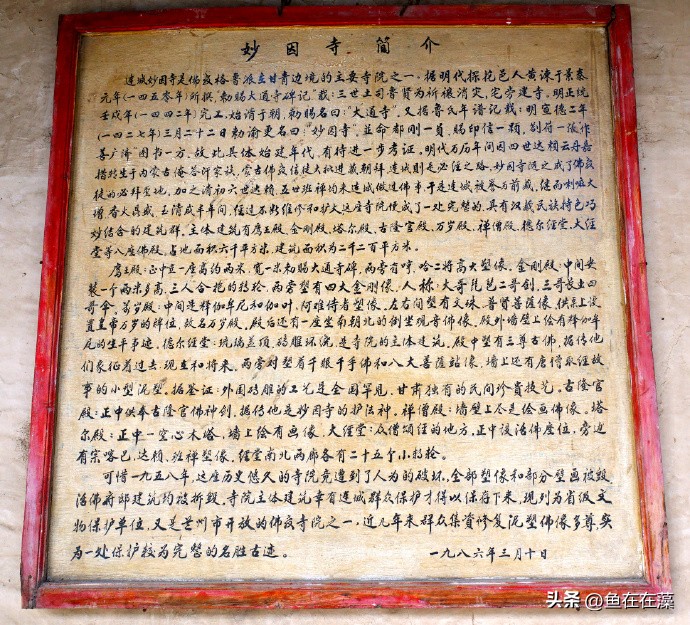 妙因寺简介
连城妙因寺是佛教格鲁派在甘青边境的主要寺院之一，据明代探花邑人黄谏于景泰
元年（一四五零年）所撰"敕赐大通寺碑记"载：三世土司鲁贤为祈禳消灾，宅旁建寺。明正统
壬戌年（一四四二年）完工，始清于朝，勅赐名曰："大通寺"。又据鲁氏年谱记载：明宣德二年
（一四二七年）三月二十二日勅谕更名曰："妙因寺"，并命都刚一员，赐印信一颗，劄符一张作
善广济"图书一方。故此具体始建年代，有待进一步考证。明代万历年间因四世达赖云丹嘉
措转生于内蒙古俺答汗家族，蒙古佛教信徒大批进藏朝拜，连城则是必经之路，妙因寺随之成了佛教
徒的必拜圣地，加之清初六世达赖、五世班禅均来连城做过佛事，于是连城被誉为前藏，继而喇嘛大
增，香火昌盛。至清咸丰年间，经过不断维修和护大这座寺院便成了一处完整的，具有汉藏民族特色巧
妙结合的建筑群，主体建筑有鹰王殿、金刚殿、塔尔殿、古隆宫殿、万岁殿、禅僧殿、德尔经堂、大经
堂等八座佛殿，占地面积六千平方米，建筑面积为二千二百平方米。
鹰王殿：正中立一座高约两米，宽一米勅赐大通寺碑，两旁有哼、哈二将高大塑像。金刚殿：中间安
装一个两米多高，三人合抱的转轮，两旁塑有四大金刚像，人称：大哥琵琶二哥剑，三哥长虫四
哥伞。万岁殿：中间造释伽牟尼和伽叶、阿难侍者塑像，左右间塑有文殊、普贤菩萨像，供桌上设
置皇帝万岁的牌位，故名万岁殿，殿后还有一座坐南朝北的倒坐观音佛像，殿外墙壁上绘有释加牟
尼的生平事迹。德尔经堂：琉璃盖顶，砖雕环院，是寺院的主体建筑，殿中塑有三尊古佛，据传他
们象征着过去、现在和将来。两旁对塑着千眼千手佛和八大菩萨站像，墙上还有唐僧取经故
事的小型泥塑。据鉴证：外围砖雕的工艺是全国罕见，甘肃独有的民间珍贵技艺。古隆宫
殿：正中供奉古隆官佛神剑，据传他是妙因寺的护法神。禅僧殿：墙壁上尽是绘画佛像。塔
尔殿：正中一空心木塔，墙上绘有画像。大经堂：众僧颂经的地方，正中设活佛座位，旁边
有宗喀巴、达赖、班禅塑像，经堂南北两廊各有二十五个小转轮。
可惜一九五八年，这座历史悠久的寺院竟遭到了人为的破坏，全部塑像和部分壁画被毁
活佛府邸建筑均被折毁，寺院主体建筑幸有连城群众保护才得以保存下来，现列为省级文
物保护单位，又是兰州市开放的佛教寺院之一，近几年来群众集资修复泥塑佛像多尊，实
为一处保护较为完整的名胜古迹。 一九八六年三月十日
头条 @鱼在在藻